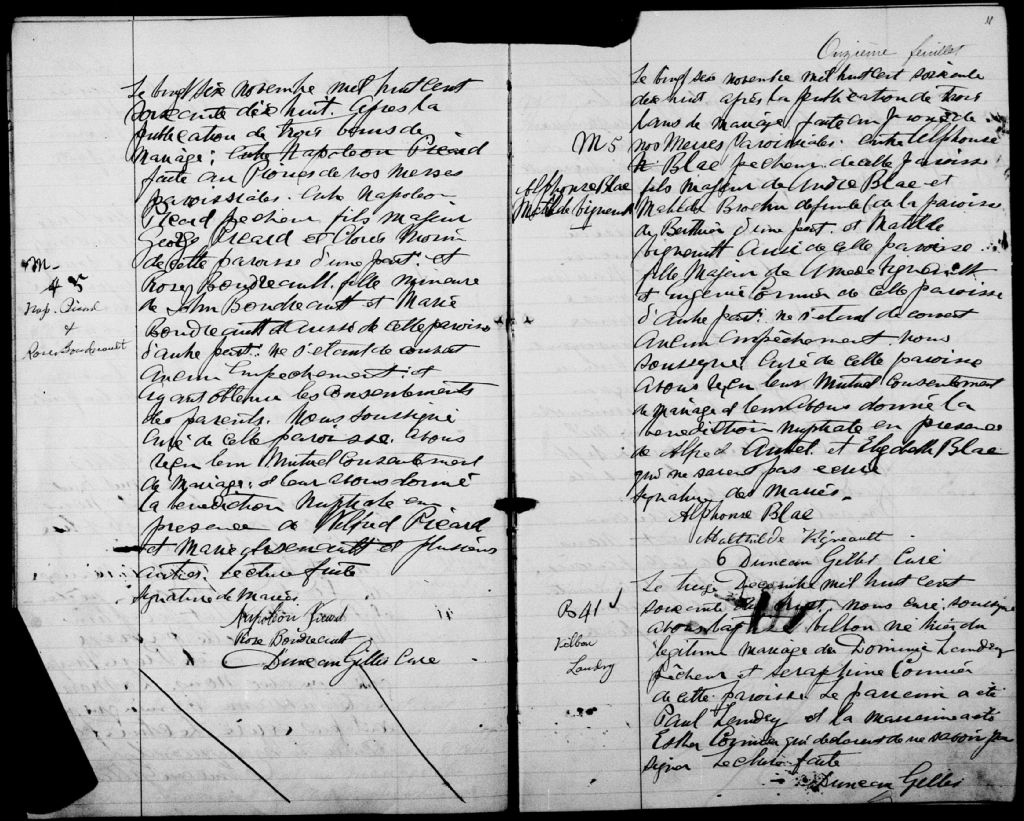 Le vingt six novembre mil huit cent
soixante dix huit. Après la
publication de trois bans de
mariage; entre Napoléon Picard
faite au Prônes de nos Messes
paroissiales. Entre Napoleon
Picard pecheur fils majeur
George Picard et Morin
de cette paroisse d'une part: et
Rose Boudreault fille mineure
de John Boudreault et Marie
Boudreault aussi de cette paroisse
d'autre part: ne s'étant découvert
aucun empêchement: et
ayant obtenu les consentements
des parents. Nous soussigné
Curé de cette paroisse. avons
reçu leur Mutuel Consentement
de Mariage: et leur avons donné
la bénédiction Nuptiale en
presence de Picard
et Marie Arsenault et plusieurs
autres. Lecture faite
Signature de Mariés
Napoléon Picard
Rose Boudreault
Duncan Gillis Curé
M-
45
Nap. Picard
&
Rose Boudreault
11
Onzième feuillet
Le vingt six novembre mil huit cent soixante
dix huit après la publication de trois
bans de mariage faite au Prône de
nos Messes Paroissiales. Entre Alphonse
Blae pecheur de cette Paroisse
fils majeur de André Blae et
Mathilde Brochu défunte de la paroisse
de Berthier d'une part. et Matilde
Vigneault aussi de cette paroisse.
fille Majeur de Amede Vigneault
et Eugénie Cormier de cette paroisse
d'autre part: ne s'étant découvert
aucun empêchement. nous
soussigné Curé de cette paroisse
avons reçu leur Mutuel Consentement
de mariage et leur avons donné la
bénédiction nuptiale en presence
de Alfred et Elizabeth Blae
qui ne savent pas écrire
Signature des Mariés.
Alphonse Blae
Mathilde Vigneault
Duncan Gillis Curé
M 5
Alphonse Blae
Matilde Vigneault
Le treize Decembre mil huit cent
soixante dix huit. Nous curé soussigné
avons baptisé Vilbon né hier du
légitime mariage de Dominic Landry
Pêcheur et Seraphine Cormier
de cette paroisse. Le parrain a été
Paul Landry et la Marraine a été
Esther Cormier qui déclarent de ne savoir pas
signer Lecture faite
Duncan Gillis
B 41
Vilbon
Landry